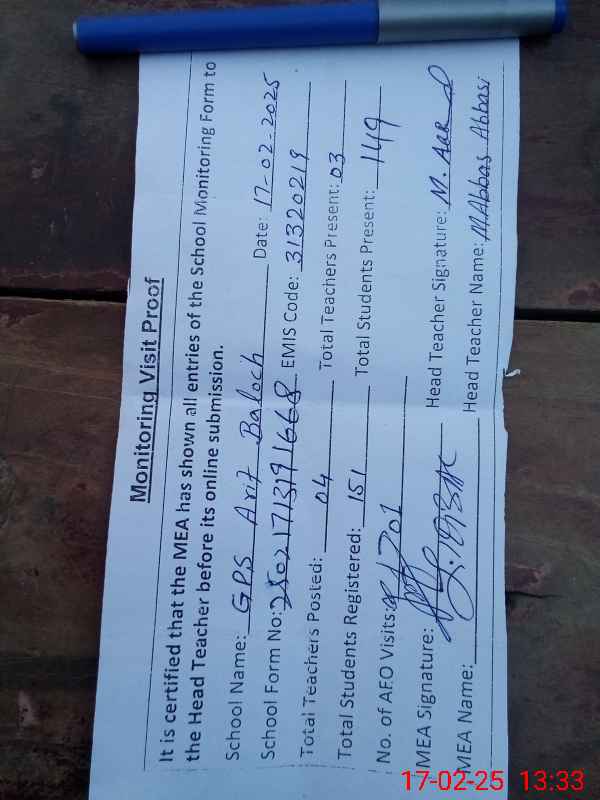 Monitoring Visit Proof
It is certified that the MEA has shown all entries of the School Monitoring Form to
the Head Teacher before its online submission.
School Name: GPS Arif Baloch Date: 17-02-2025
School Form No: EMIS Code: 31320219
Total Teachers Posted: 04 Total Teachers Present: 03
Total Students Registered: 151 Total Students Present: 149
No. of AEO Visits: 01
MEA Signature: Head Teacher Signature: M.
MEA Name: Head Teacher Name: M.Abbas Abbasi
17-02-25 13:33